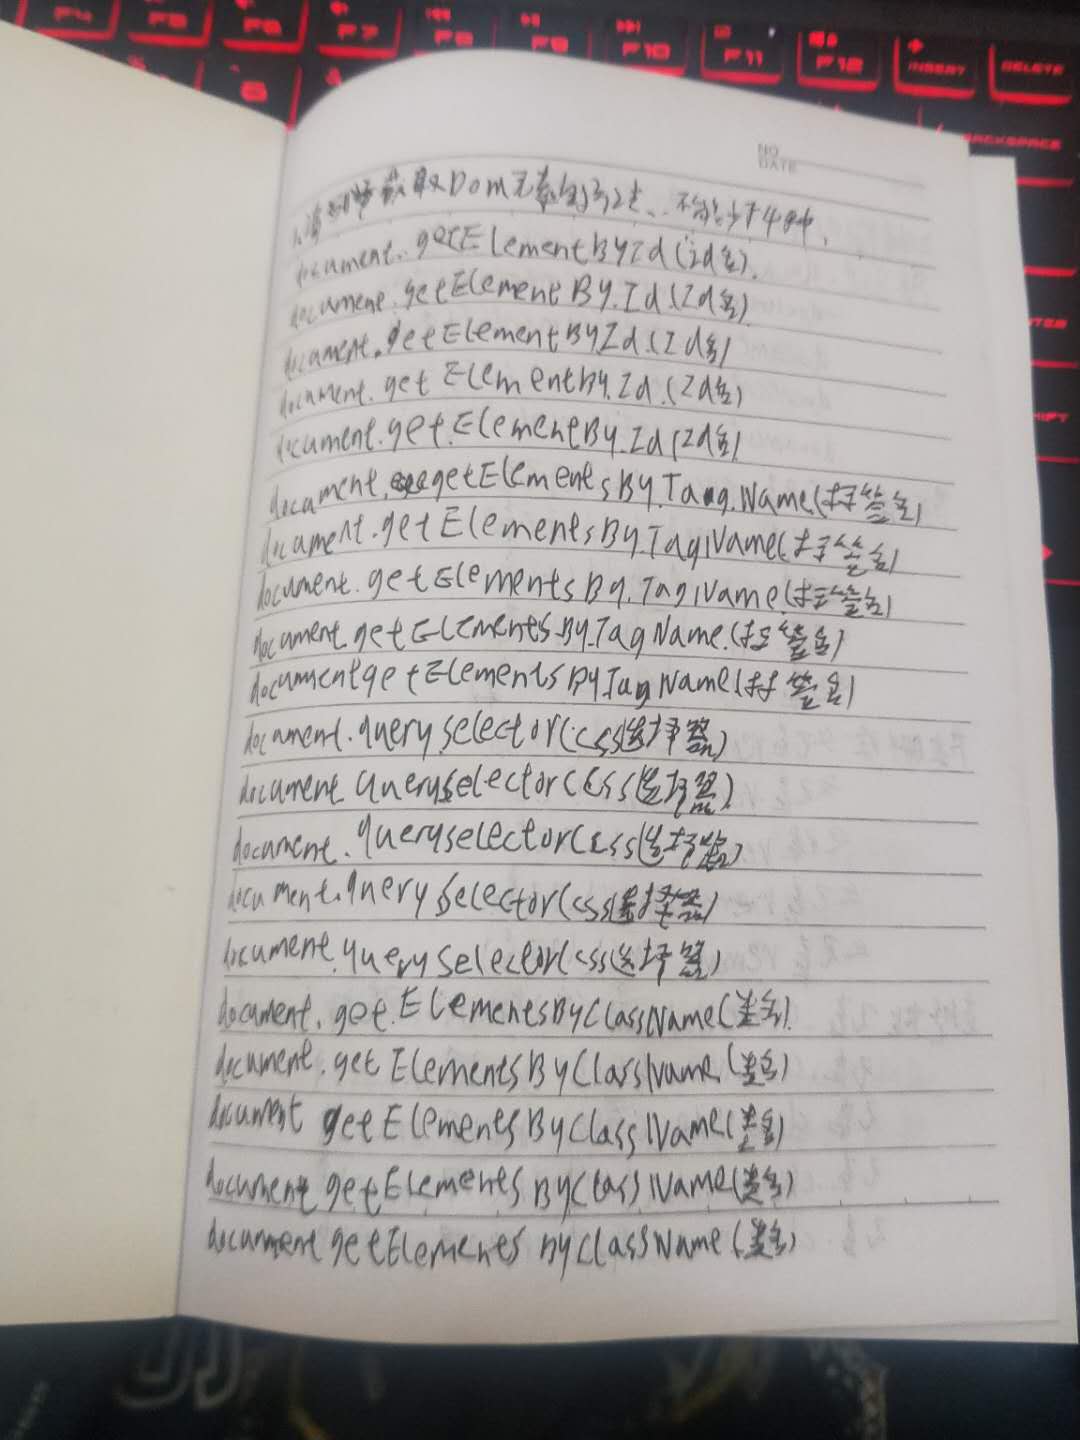 F4 F5 F6 F7 F8 F9 F10 F11 F12 INSERT DELETE
6
BACKSPACE
NO
DATE
获取Dom元素的方法、不能少于4种.
document.getElementById(id名).
document.getElementBy.Id.(Id名)
document.getElementById.(Id名)
document.get ElementBy.Id.(Id名)
document.get.ElementBy.Id(Id名)
document.getElementsBy.Tag.Name(标签名)
document.getElementsBy.TagName(标签名)
document.getElementsBy.TagName(标签名)
document.getElementsBy.TagName.(标签名)
documentgetElementsByTagName(标签名)
document.queryselector(css选择器)
document queryselector(css选择器)
document.queryselector(css选择器)
document.queryselector(css选择器)
document.queryselector(css选择器)
document.get.ElementsByClassName(类名).
document.get ElementsByClassName(类名)
document getElementsByClassName(类名)
document getElementsByClassName(类名)
document getElements ByClassName(类名)